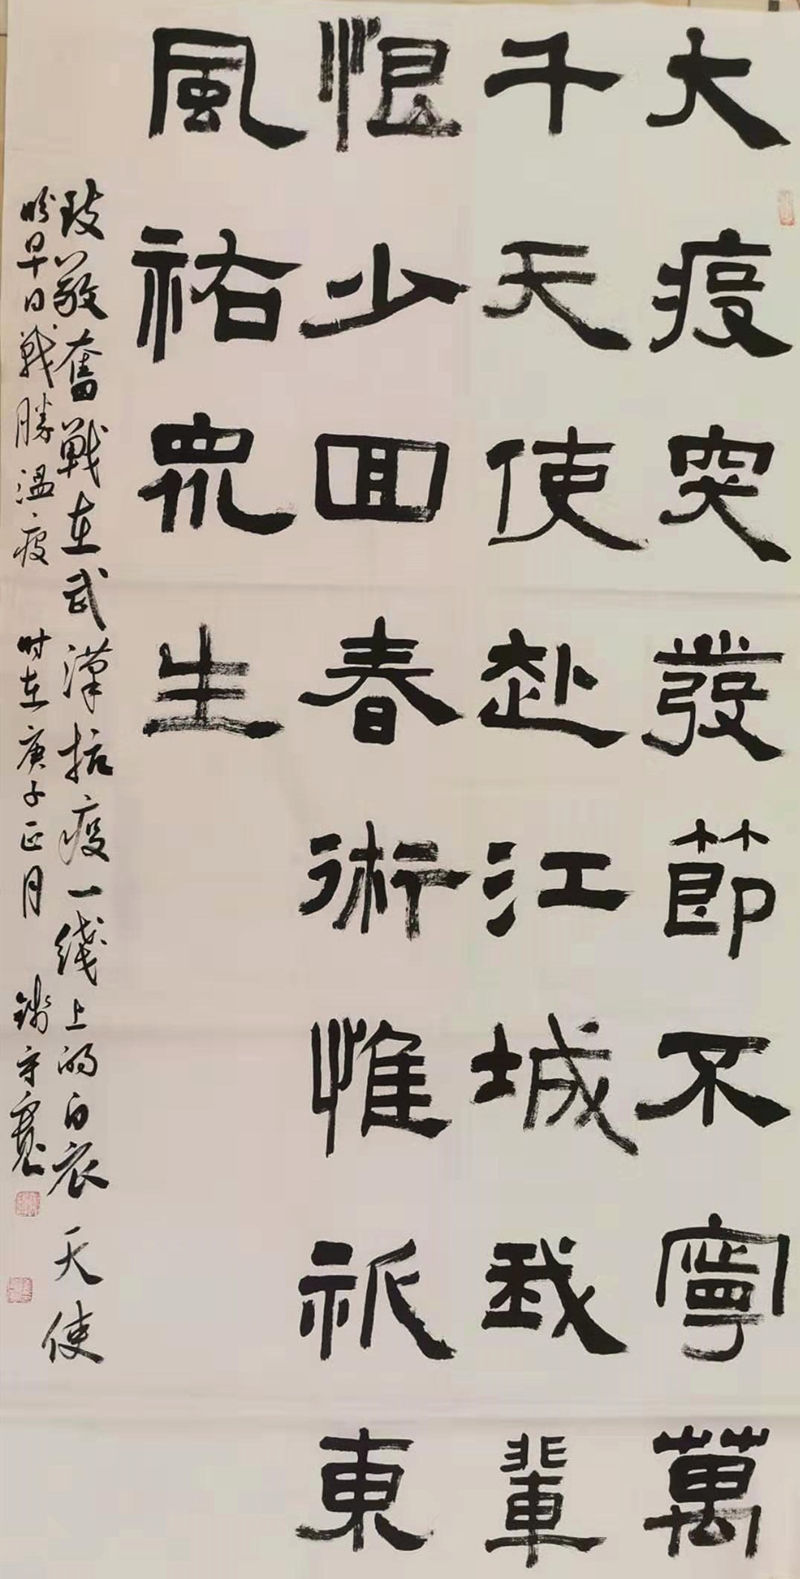 大疫突發節不寧萬
千天使赴江城我輩
恨少回春術惟祈東
風祐眾生
致敬奮戰在武漢抗疫一线上的白衣天使
盼早日戰勝溫疫 时在庚子正月 守寬